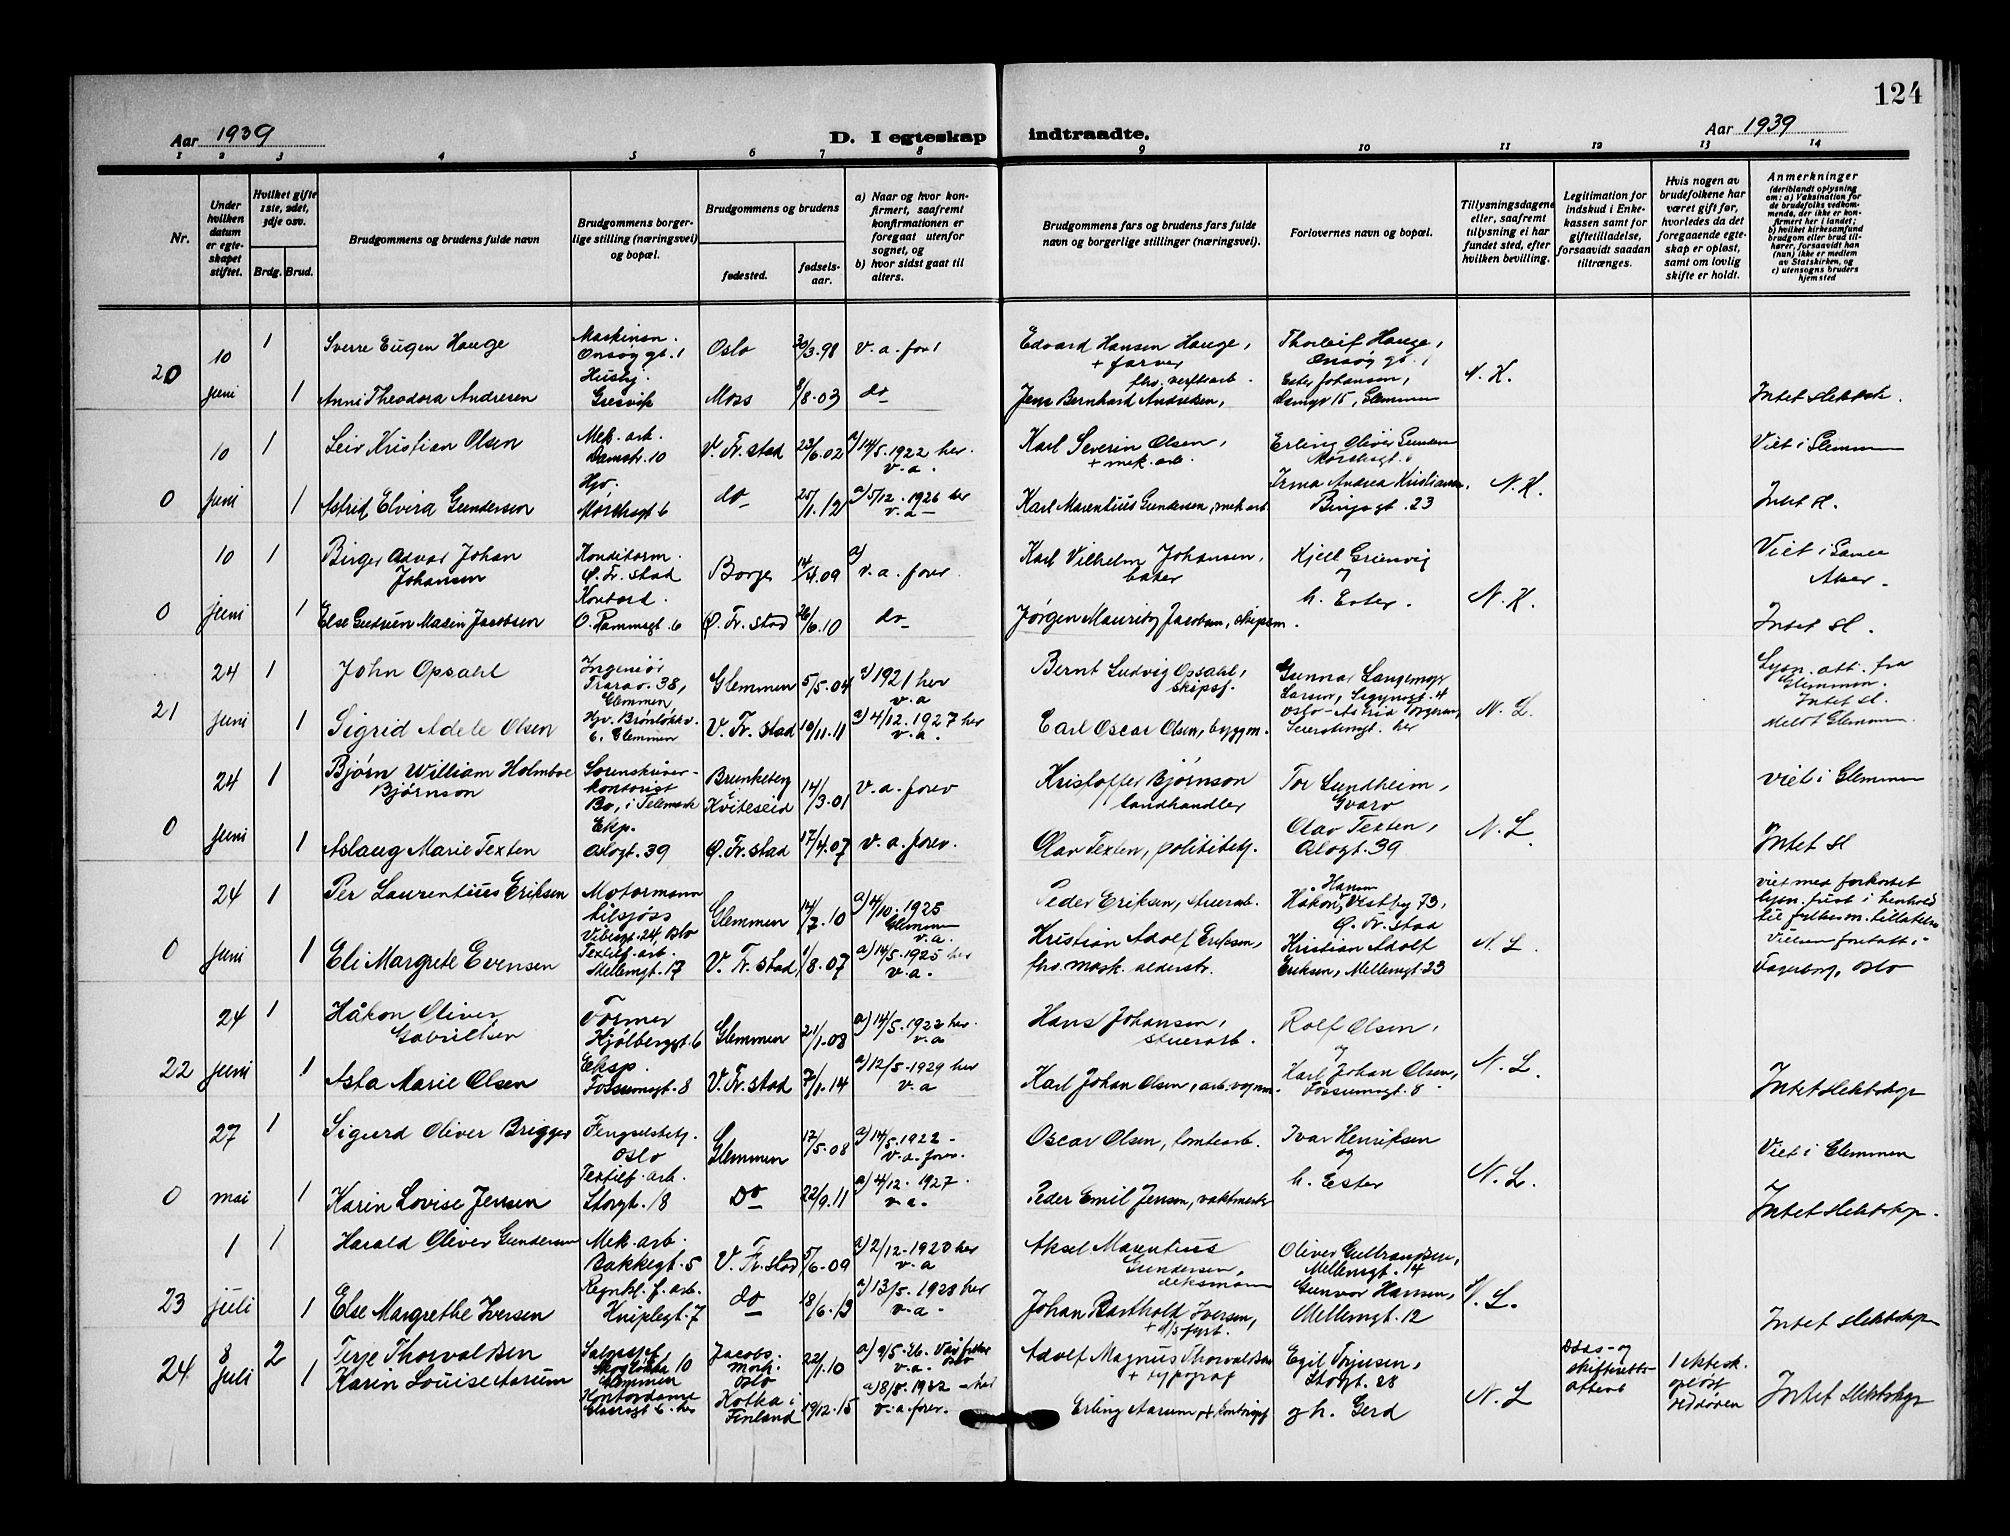 124
Aar 1939
D. I egteskap indtraadte.
Aar 1939
1 2 3 4 5 6 7 8 9 10 11 12 13 14
Nr.
Under hvilken datum er egteskapet stiftet.
Hvilket gifte 1ste, 2det, 3dje osv.
Brdg. Brud.
Brudgommens og brudens fulde navn
Brudgommens borgerlige stilling (næringsvei) og bopæl.
Brudgommens og brudens
fødested.
fødselsaar.
a) Naar og hvor konfirmert, saafremt konfirmationen er foregaat utenfor sognet, og
b) hvor sidst gaat til alters.
Brudgommens fars og brudens fars fulde navn og borgerlige stillinger (næringsvei).
Forlovernes navn og bopæl.
Tillysningsdagene eller, saafremt tillysning ei har fundet sted, efter hvilken bevilling.
Legitimation for indskud i Enkekassen samt for giftetilladelse, forsaavidt saadan tiltrænges.
Hvis nogen av brudefolkene har været gift før, hvorledes da det foregaaende egteskap er opløst, samt om lovlig skifte er holdt.
Anmerkninger
(deriblandt oplysning om: a) Vaksination for de brudefolks vedkommende, der ikke er konfirmert her i landet; b) hvilket kirkesamfund brudgom eller brud tilhører, forsaavidt han (hun) ikke er medlem av Statskirken, og c) utensogns bruders hjemsted
20 10 juni 1 Sverre Eugen Hauge Oslo 30/3.98 v.a. for Edvard Hansen Hauge, + farver Thorleif Hauge,
1 Anni Theodora Andresen Husbj. Gresvik Moss 8/8.03 do Jens Bernhard Andresen, Ester Johansen, N.K. Intet slektsk.
0 10 juni 1 Leiv Kristian Olsen Mek. arb. Damstr. 10 V. Fr.stad 23/6.02 a) 14/5.1922 her. v.a. Karl Severin Olsen, + mek. arb. Viet i Glemmen
1 Astrid Elvira Gundersen Hjv. do 25/1.12 a) 5/12.1926 her v.a. Karl Marentius Gundersen, mek arb. Irma Andrea Kristiansen. 23 N.K. Intet sl.
0 10 juni 1 Birger Advar Johan Johansen Konditorm. Ø. Fr. stad Borge 14/4.09 a) v.a. forev. Karl Vilhelm Johansen, baker Kjell Grimsvig og Viet i
1 Else Gudrun Masin Jacobsen Kontord. 6 Ø. Fr. stad 26/6.10 do Jørgen Jacobsen, h. Ester. N.K. Intet sl.
21 24 juni 1 John Opsahl Ingeniør Trarav. 38, Glemmen Glemmen 5/5.04 a) 1921 her v.a Bernt Ludvig Opsahl, skipsf. Gunnar Langemyr Larsen, 4 Oslo Lysn. att. fra Glemmen.
1 Sigrid Adele Olsen Hjv. 6. Glemmen V. Fr. stad 10/11.11 a) 4/12.1927 her v.a. Carl Oscar Olsen, byggm. her N.L. Intet sl. Glemmen
0 24 juni 1 Bjørn William Holmboe Bjørnson Sorenskriver-kontorist Bø, i Telemark Brunkeberg i Kviteseid 14/3.01 v.a. forev Kristoffer Bjørnson landhandler Tor Sundheim, Gvarv viet i Glemmen
1 Aslaug Marie Texten Eksp. Oslogt. 39 Ø. Fr. stad 17/4.07 v.a. forev. Olav Texten, politibetj. Olav Texten, Oslogt. 39 N.L. Intet sl
0 24 juni 1 Per Laurentius Eriksen Motormann tilsjøss Vibesgt. 24, Oslo Glemmen 14/7.10 a) 4/10.1925 Glemmen v.a. Peder Eriksen, stuerarb. Håkon Hansen, Vestby 73, Ø. Fr. stad viet med forkortet lysn. frist i henhold til fylkesm. tillatelse
1 Eli Margrete Evensen Textilf. arb. Mellemgt. 17 V. Fr. stad 1/8.07 a) 14/5.1925 her v.a. Kristian Adolf Eriksen, fhv. mask. alderstr. Kristian Adolf Eriksen, Mellemgt 23 N.L. Vielsen foretatt i Fagerborg, Oslo
22 24 juni 1 Håkon Oliver Gabrielsen Former Hjølbergsgt. 6 Glemmen 21/1.08 a) 14/5.1922 her. v.a Hans Johansen, stuerarb. Rolf Olsen, og
1 Asta Marie Olsen Eksp. Fossumsgt. 8 V. Fr. stad 7/1.14 a) 12/5.1929 her v.a Karl Johan Olsen, arb. Karl Johan Olsen, Fossumsgt. 8 N.L. Intet slektskap
0 27 mai 1 Sigurd Oliver Brigger Fengselsbetj. Oslo Glemmen 17/5.08 a) 14/5.1922 - v.a. forev. Oscar Olsen, tomtearb. Ivar Henriksen og Viet i Glemmen
1 Karin Lovise Jensen Textilf. arb. Storgt. 18 Do 22/9.11 a) 4/12.1927. v.a. Peder Emil Jensen, vaktmester h. Ester N.L. Intet slektskap.
23 1 juli 1 Harald Oliver Gundersen Mek. arb. Bakkegt. 5 V. Fr. stad 5/6.09 a) 2/12.1923 her v.a Aksel Marentius Gundersen, deksmann Oliver Gulbrandsen, Mellemgt. 14
1 Else Margrethe Iversen Regnkl. f. arb. Kniplegt. 7 do 18/6.13 a) 13/5.1928 her v.a. Johan Barthold Iversen, + d/s fyrb. Gunvor Hansen, Mellemgt. 12 N.L. Intet slektskap
24 8 juli 2 Terje Thorvaldsen 10 Glemmen Jacobs. mark. Oslo 22/1.10 a) 9/5.26. v.a. Oslo Adolf Magnus Thorvaldsen + typograf Egil Torjusen, Storgt. 28 Døds- og skifteretts-attest 1 ektesk. opløst ved døden
1 Karen Louise Aarum Kontordame 6. her Kotka i Finland 19/12.15 a) 8/5.1932 - her v.a. forev. Erling Aarum, kontorist og h. Gerd N.L Intet slektskap